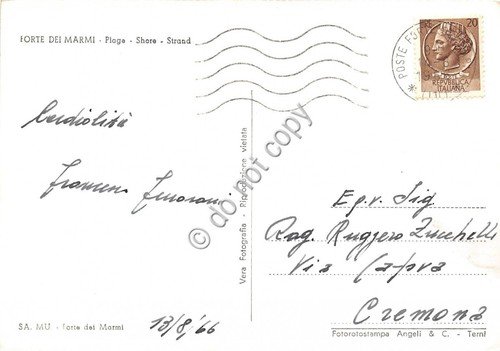 FORTE DEI MARMI - Plage - Shore - Strand
Cordialità
SA. MU - Forte dei Marmi
13/8/66
Vera Fotografia - Riproduzione vietata
do not copy
POSTE
20
POSTE
REPUBBLICA
ITALIANA
Egr. Sig
Rag. Ruggero Zucchelli
Via
Cremona
Fotorotostampa Angeli & C. - Terni